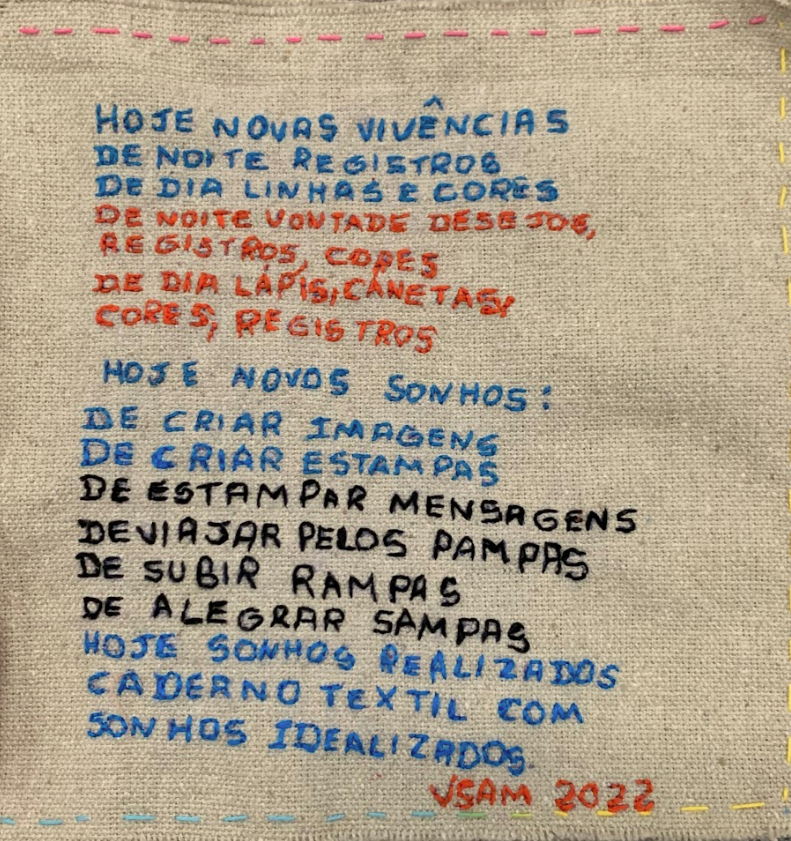 HOJE NOVAS VIVÊNCIAS
DE NOITE REGISTROS
DE DIA LINHAS E CORES
DE NOITE VONTADE DESEJOS,
REGISTROS, CORES
DE DIA LÁPIS, CANETAS,
CORES, REGISTROS
HOJE NOVOS SONHOS:
DE CRIAR IMAGENS
DE CRIAR ESTAMPAS
DE ESTAMPAR MENSAGENS
DE VIAJAR PELOS PAMPAS
DE SUBIR RAMPAS
DE ALEGRAR SAMPAS
HOJE SONHOS REALIZADOS
CADERNO TEXTIL COM
SONHOS IDEALIZADOS.
VSAM 2022